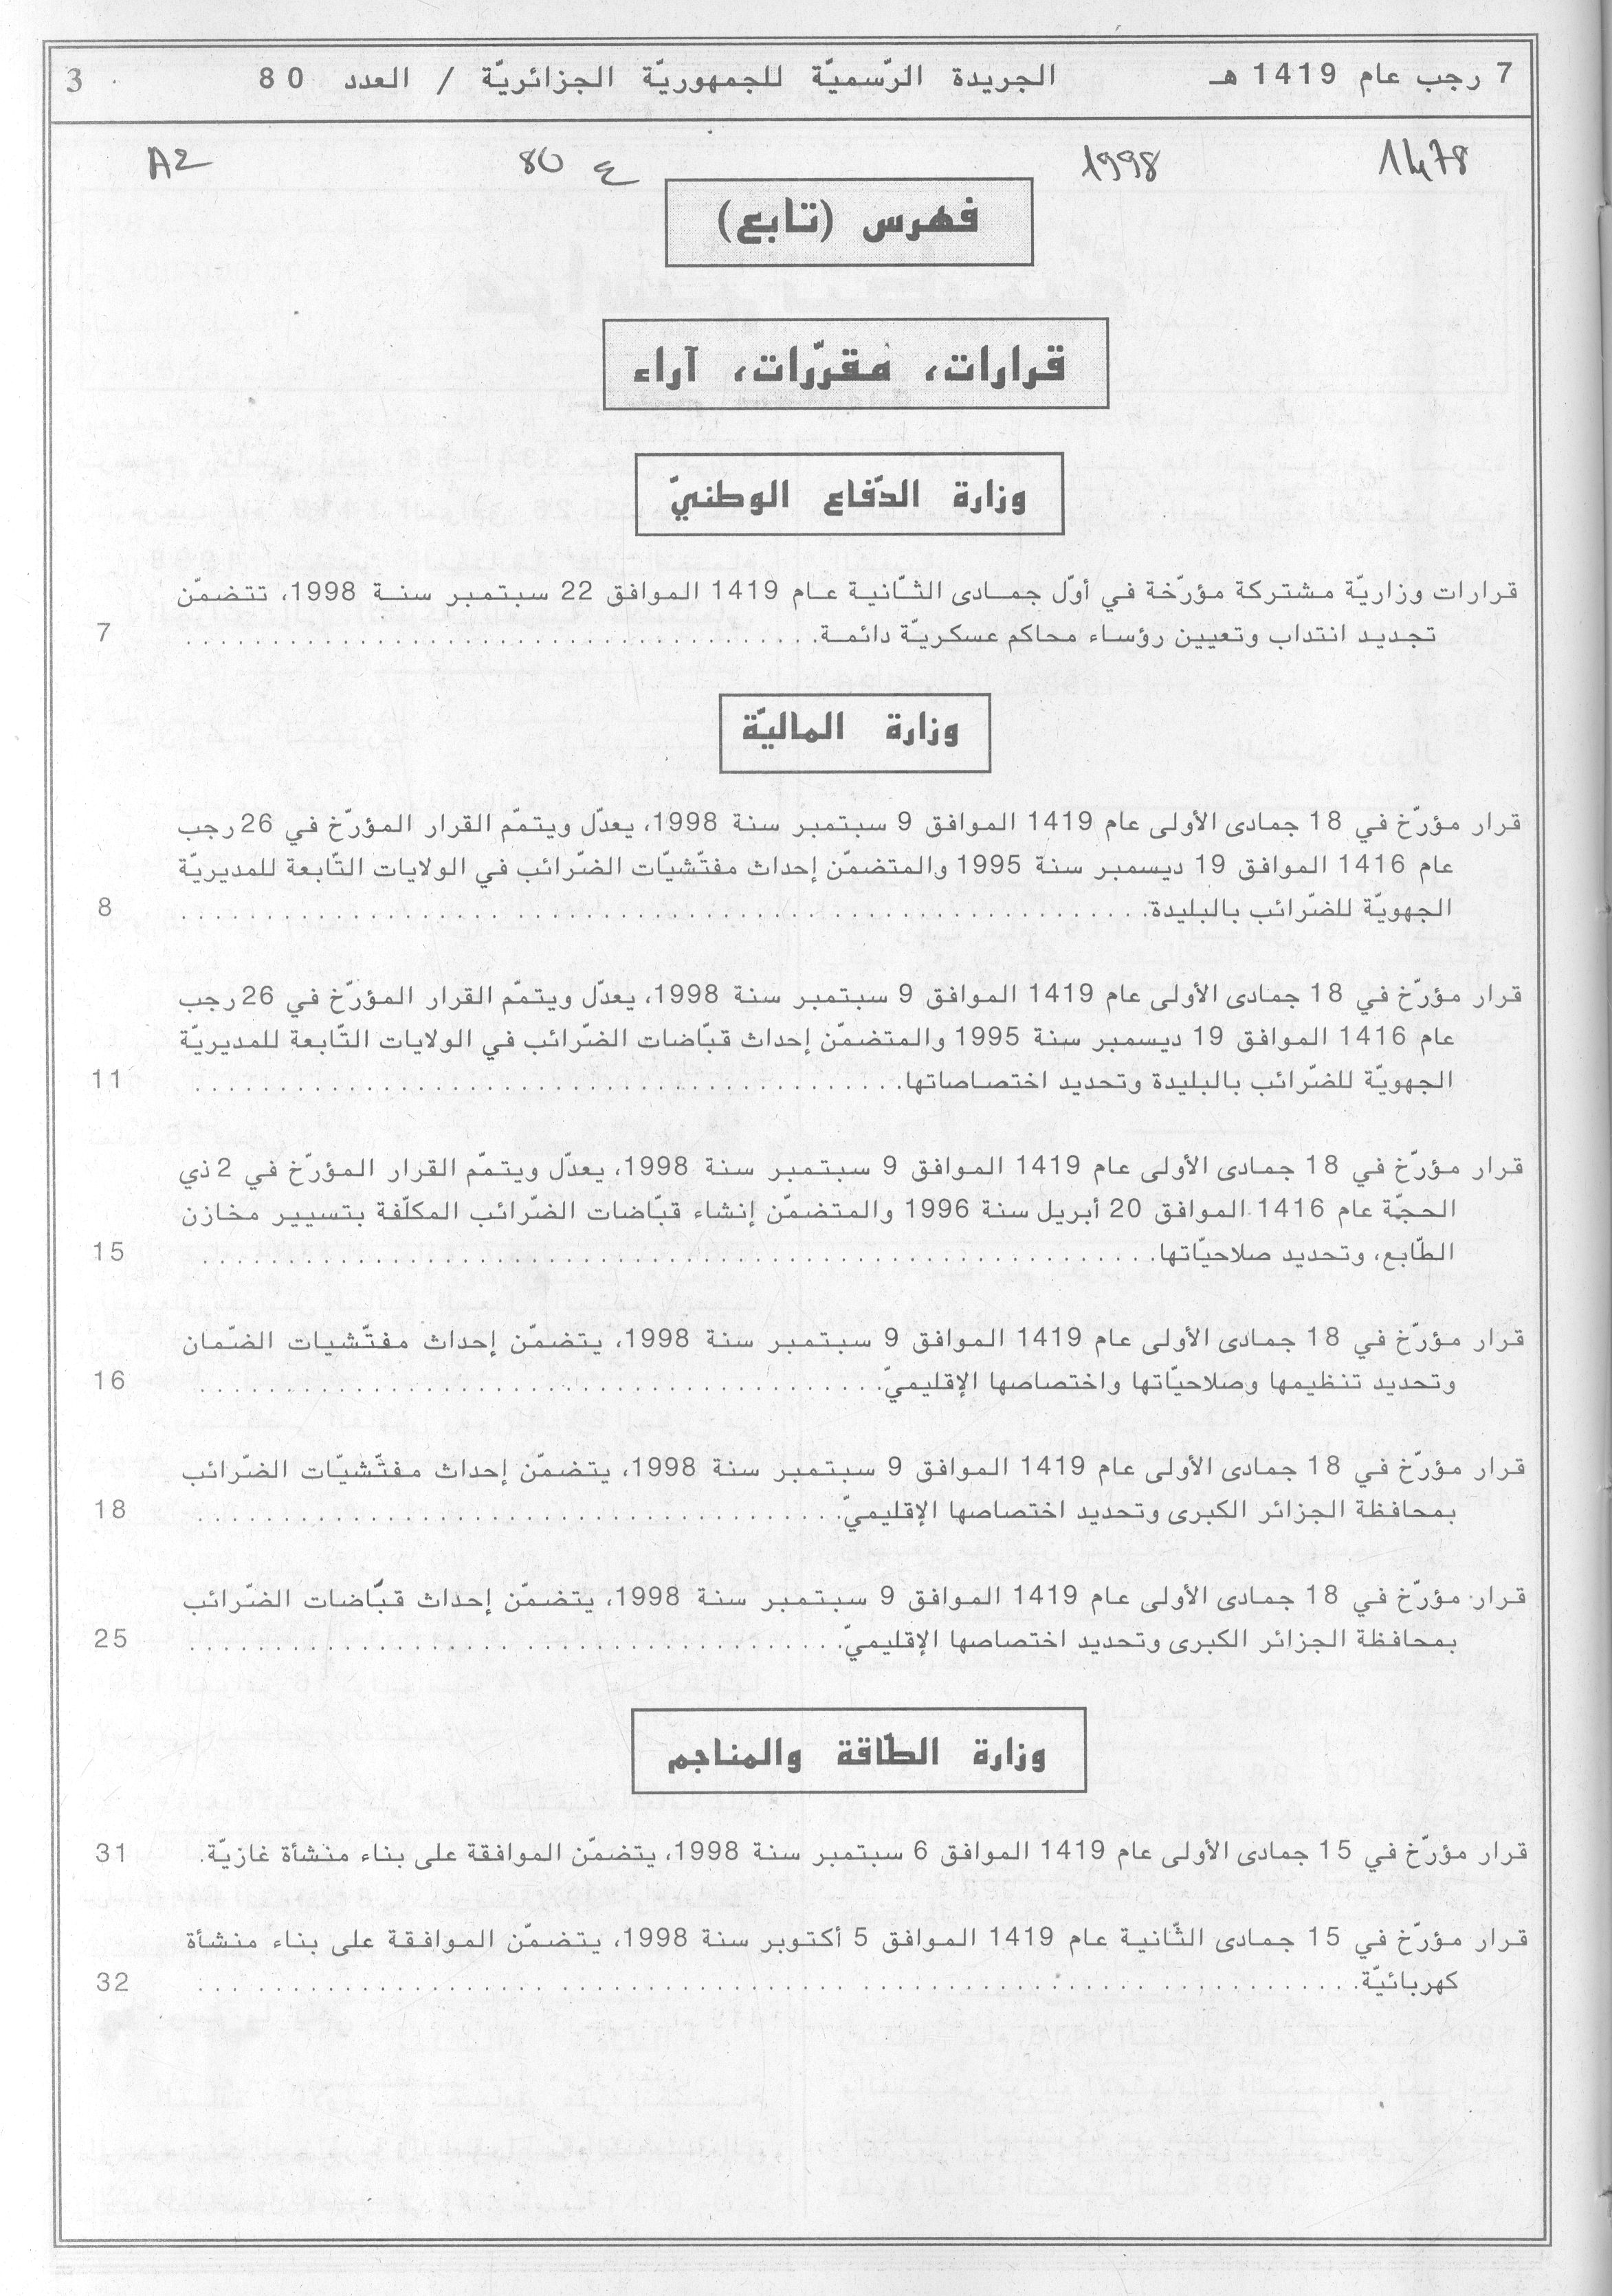 7 رجب عام 1419 هـ الجريدة الرّسميّة للجمهوريّة الجزائريّة / العدد 80 3
1478 1998 ع 80 A2
فهرس (تابع)
قرارات، مقرّرات، آراء
وزارة الدّفاع الوطنيّ
قرارات وزاريّة مشتركة مؤرّخة في أوّل جمـادى الثّـانيـة عـام 1419 الموافق 22 سبتمبر سنـة 1998، تتضمّن
تجديد انتداب وتعيين رؤساء محاكم عسكريّة دائمـة. . . . . . . . . . . . . . . . . . . . 7
وزارة الماليّة
قرار مؤرّخ في 18 جمادى الأولى عام 1419 الموافق 9 سبتمبر سنة 1998، يعدّل ويتمّم القرار المؤرّخ في 26 رجب
عام 1416 الموافق 19 ديسمبر سنة 1995 والمتضمّن إحداث مفتّشيّات الضّرائب في الولايات التّابعة للمديريّة
الجهويّة للضّرائب بالبليدة. . . . . . . . . . . . . . . . . . . . 8
قرار مؤرّخ في 18 جمادى الأولى عام 1419 الموافق 9 سبتمبر سنة 1998، يعدّل ويتمّم القرار المؤرّخ في 26 رجب
عام 1416 الموافق 19 ديسمبر سنة 1995 والمتضمّن إحداث قبّاضات الضّرائب في الولايات التّابعة للمديريّة
الجهويّة للضّرائب بالبليدة وتحديد اختصاصاتها. . . . . . . . . . . . . . . . . . . . 11
قرار مؤرّخ في 18 جمادى الأولى عام 1419 الموافق 9 سبتمبر سنة 1998، يعدّل ويتمّم القرار المؤرّخ في 2 ذي
الحجّة عام 1416 الموافق 20 أبريل سنة 1996 والمتضمّن إنشاء قبّاضات الضّرائب المكلّفة بتسيير مخازن
الطّابع، وتحديد صلاحيّاتها. . . . . . . . . . . . . . . . . . . . 15
قرار مؤرّخ في 18 جمادى الأولى عام 1419 الموافق 9 سبتمبر سنة 1998، يتضمّن إحداث مفتّشيات الضّمان
وتحديد تنظيمها وصلاحيّاتها واختصاصها الإقليميّ. . . . . . . . . . . . . . . . . . . . 16
قرار مؤرّخ في 18 جمادى الأولى عام 1419 الموافق 9 سبتمبر سنة 1998، يتضمّن إحداث مفتّشيّات الضّرائب
بمحافظة الجزائر الكبرى وتحديد اختصاصها الإقليميّ. . . . . . . . . . . . . . . . . . . . 18
قرار مؤرّخ في 18 جمادى الأولى عام 1419 الموافق 9 سبتمبر سنة 1998، يتضمّن إحداث قبّاضات الضّرائب
بمحافظة الجزائر الكبرى وتحديد اختصاصها الإقليميّ. . . . . . . . . . . . . . . . . . . . 25
وزارة الطّاقة والمناجم
قرار مؤرّخ في 15 جمادى الأولى عام 1419 الموافق 6 سبتمبر سنة 1998، يتضمّن الموافقة على بناء منشأة غازيّة. 31
قرار مؤرّخ في 15 جمادى الثّانية عام 1419 الموافق 5 أكتوبر سنة 1998، يتضمّن الموافقة على بناء منشأة
كهربائيّة. . . . . . . . . . . . . . . . . . . . 32